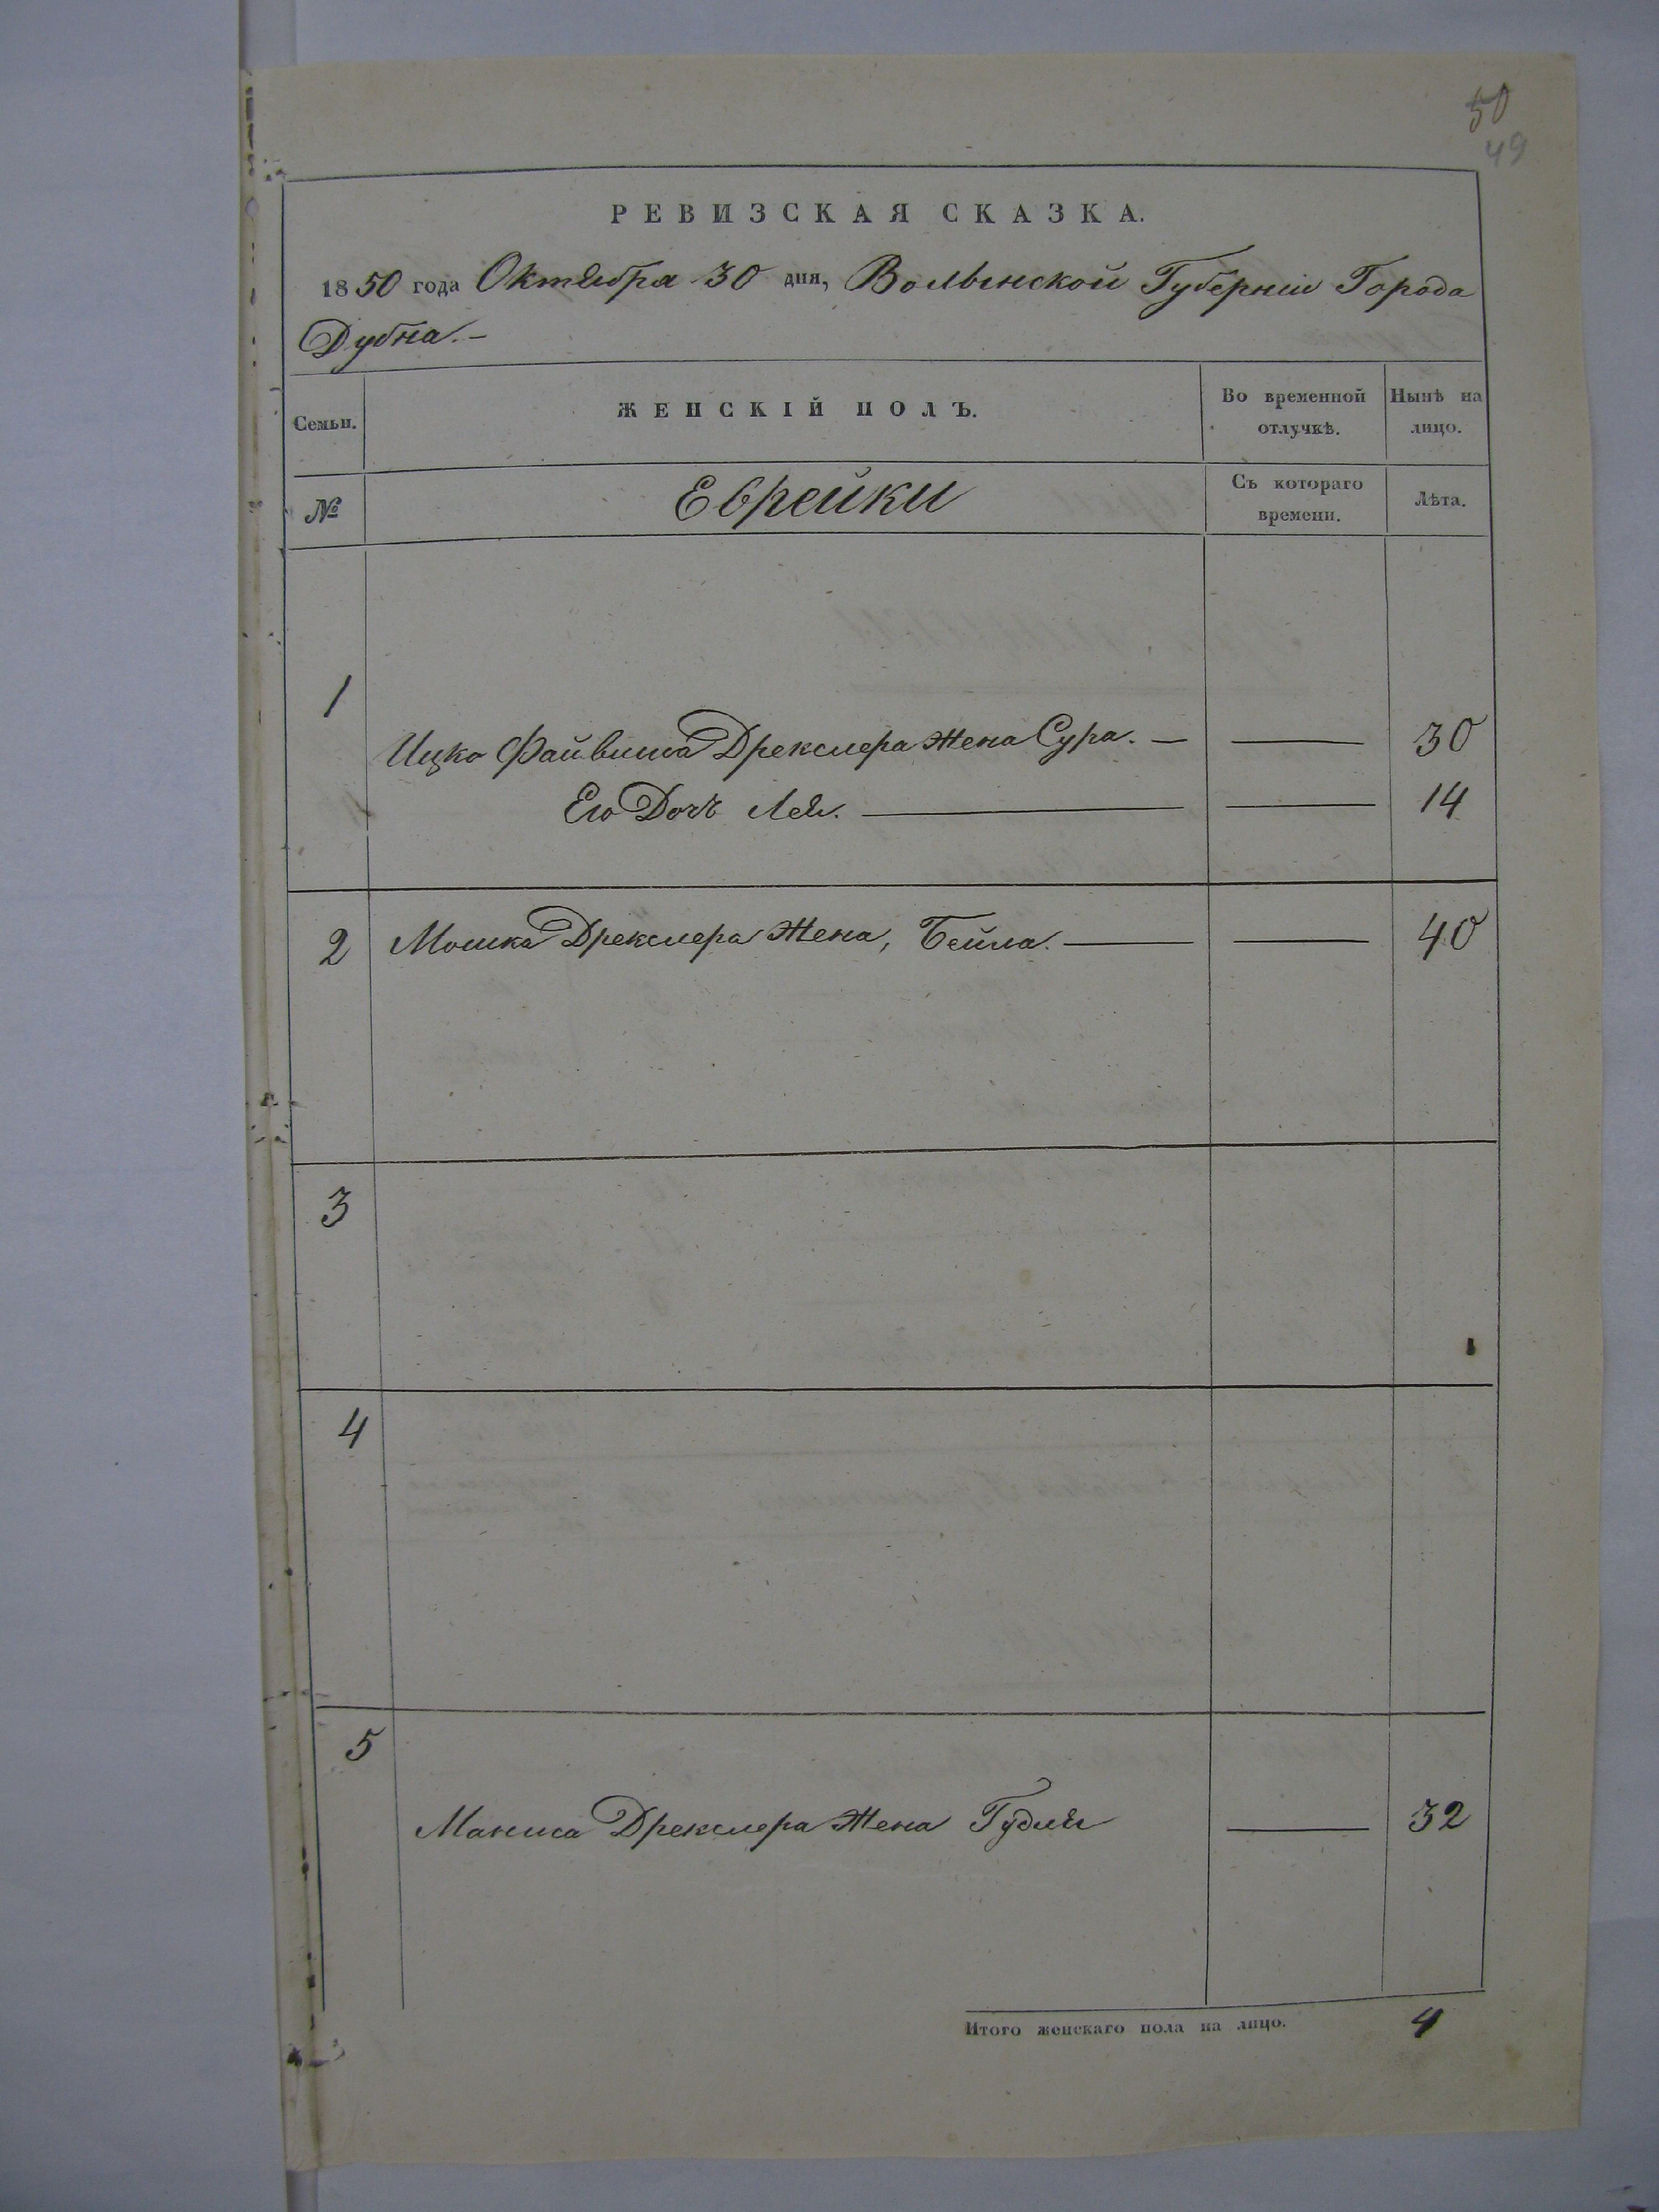 50
49
РЕВИЗСКАЯ СКАЗКА.
1850 года Октября 30 дня, Волынской Губерніи Города
Дубна.-
Семьи.
ЖЕНСКІЙ ПОЛЪ.
Во временной отлучкѣ.
Нынѣ на лицо.
№
Еврейки
Съ котораго времени.
Лѣта.
1
Ицко Файвиша Дрекслера Жена Сура. — — 30
Его Дочь Лея. — — 14
2 Мошка Дрекслера Жена, Бейла. — — 40
3
4
5
Маниса Дрекслера Жена Гудля — 32
Итого женскаго пола на лицо. 4